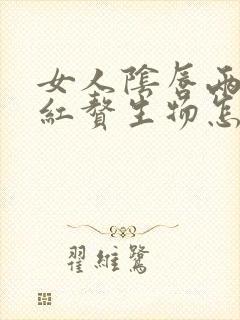 女人陰唇兩
紅贅生物怎
翟維鷺